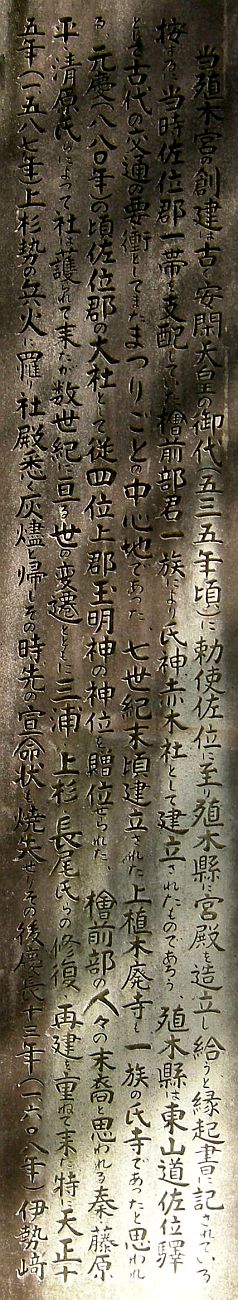 当殖木宮の創建は古く安閑天皇の御代(五三五年頃)に勅使佐位に至り殖木縣に宮殿を造立し給うと縁起書に記されている
按ずるに当時佐位郡一帯を支配していた檜前部君一族により氏神赤木社として建立されたものであろう 殖木縣は東山道佐位驛
とよぶ古代の交通の要衝としてまたまつりごとの中心地であった 七世紀末頃建立された上植木廃寺も一族の氏寺であったと思われ
る、元慶(八八〇年)の頃佐位郡の大社として従四位上郡玉明神の神位を贈位せられた、檜前部の人々の末裔と思われる秦、藤原
平、清原氏らによって社は護られて来たが数世紀に亘る世の変遷とともに三浦、上杉、長尾氏らの修復、再建を重ねて来た特に天正十
五年(一五八七年)上杉勢の兵火に罹り社殿悉く灰燼と帰しその時、先の宣命状も焼失せりその後慶長十三年(一六〇八年)伊勢﨑